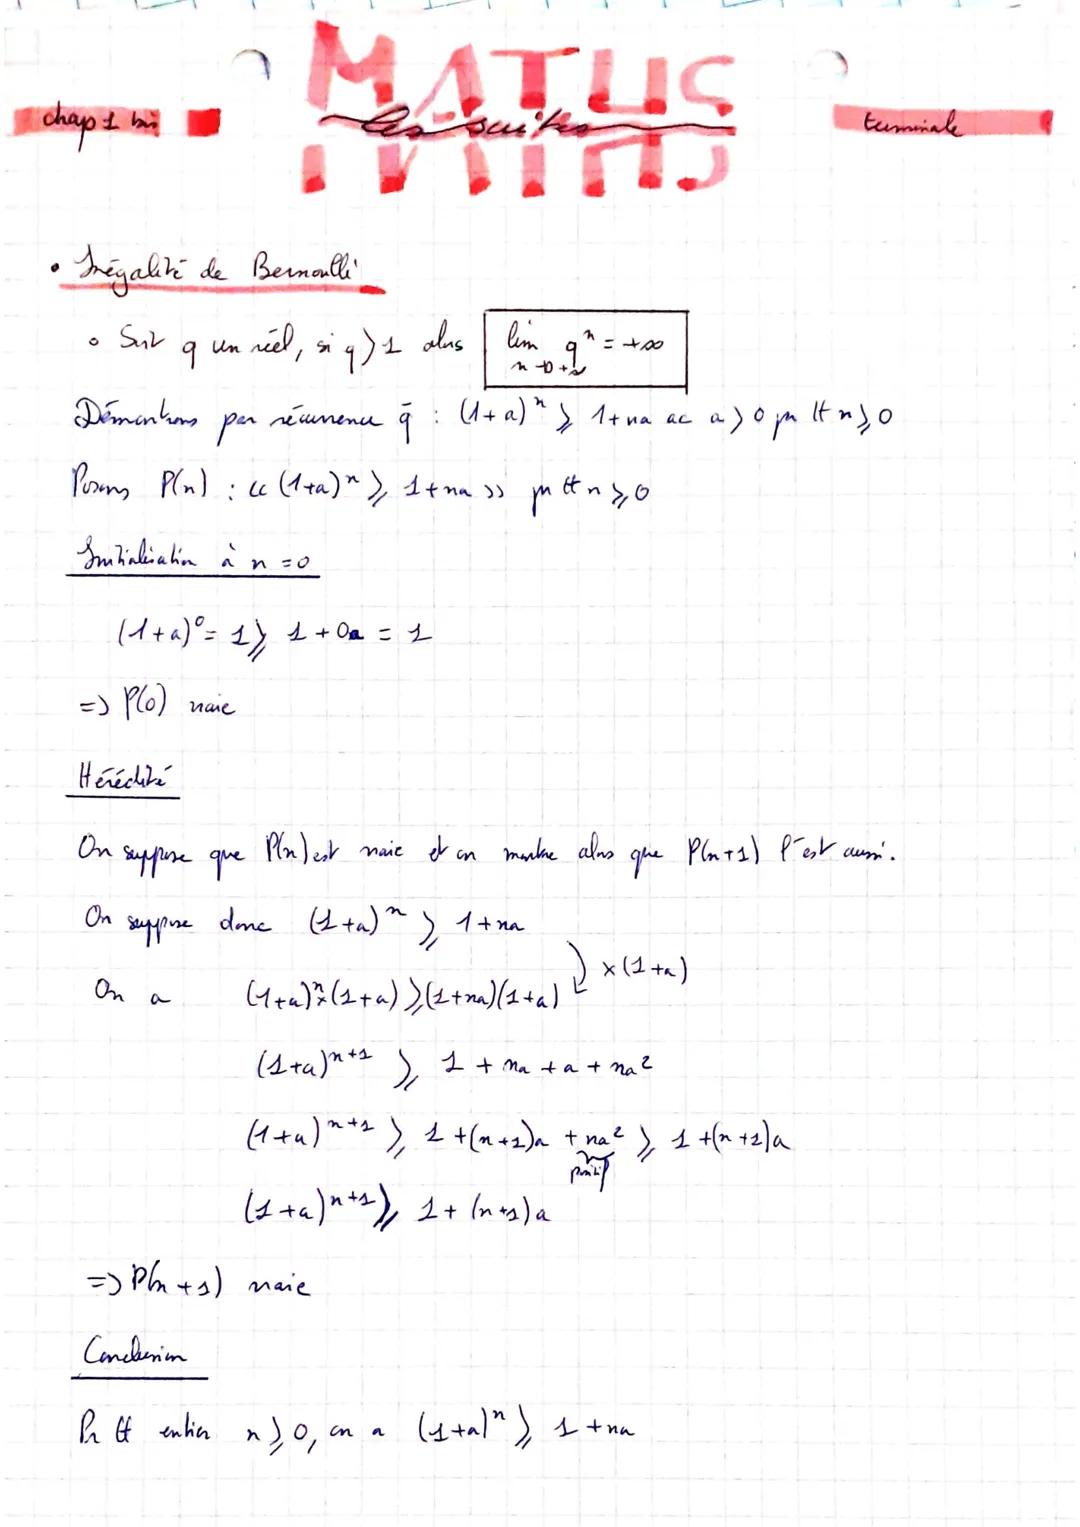 MATHS
chap 1 bis
les suites
terminale
• Inégalité de Bernoulli
∘ Soit q un réel, si q > 1 alors lim q^n = +∞
n→+∞
Démontrons par récurrence q̄ : (1+a)^n ⩾ 1+na ac a > 0 pr tt n ⩾ 0
Posons P(n) : « (1+a)^n ⩾ 1+na » pr tt n ⩾ 0
Initialisation à n = 0
(1+a)^0 = 1 ⩾ 1 + 0a = 1
=> P(0) vraie
Hérédité
On suppose que P(n) est vraie et on montre alors que P(n+1) l'est aussi.
On suppose donc (1+a)^n ⩾ 1+na
×(1+a)
On a (1+a)^n×(1+a) ⩾ (1+na)(1+a)
(1+a)^{n+1} ⩾ 1 + na + a + na²
(1+a)^{n+1} ⩾ 1 + (n+1)a + na² ⩾ 1 + (n+1)a
positif
(1+a)^{n+1} ⩾ 1 + (n+1)a
=> P(n+1) vraie
Conclusion
Pr tt entier n ⩾ 0, on a (1+a)^n ⩾ 1 + na